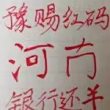 豫赐红码
河南
银行还